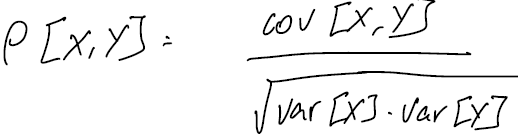 ρ[X,Y] = cov[X,Y] / √(var[X]·var[X])